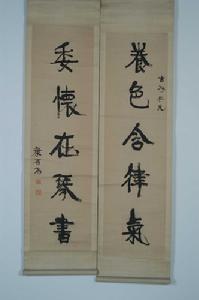 養色含律氣
委懷在琴書
康有為